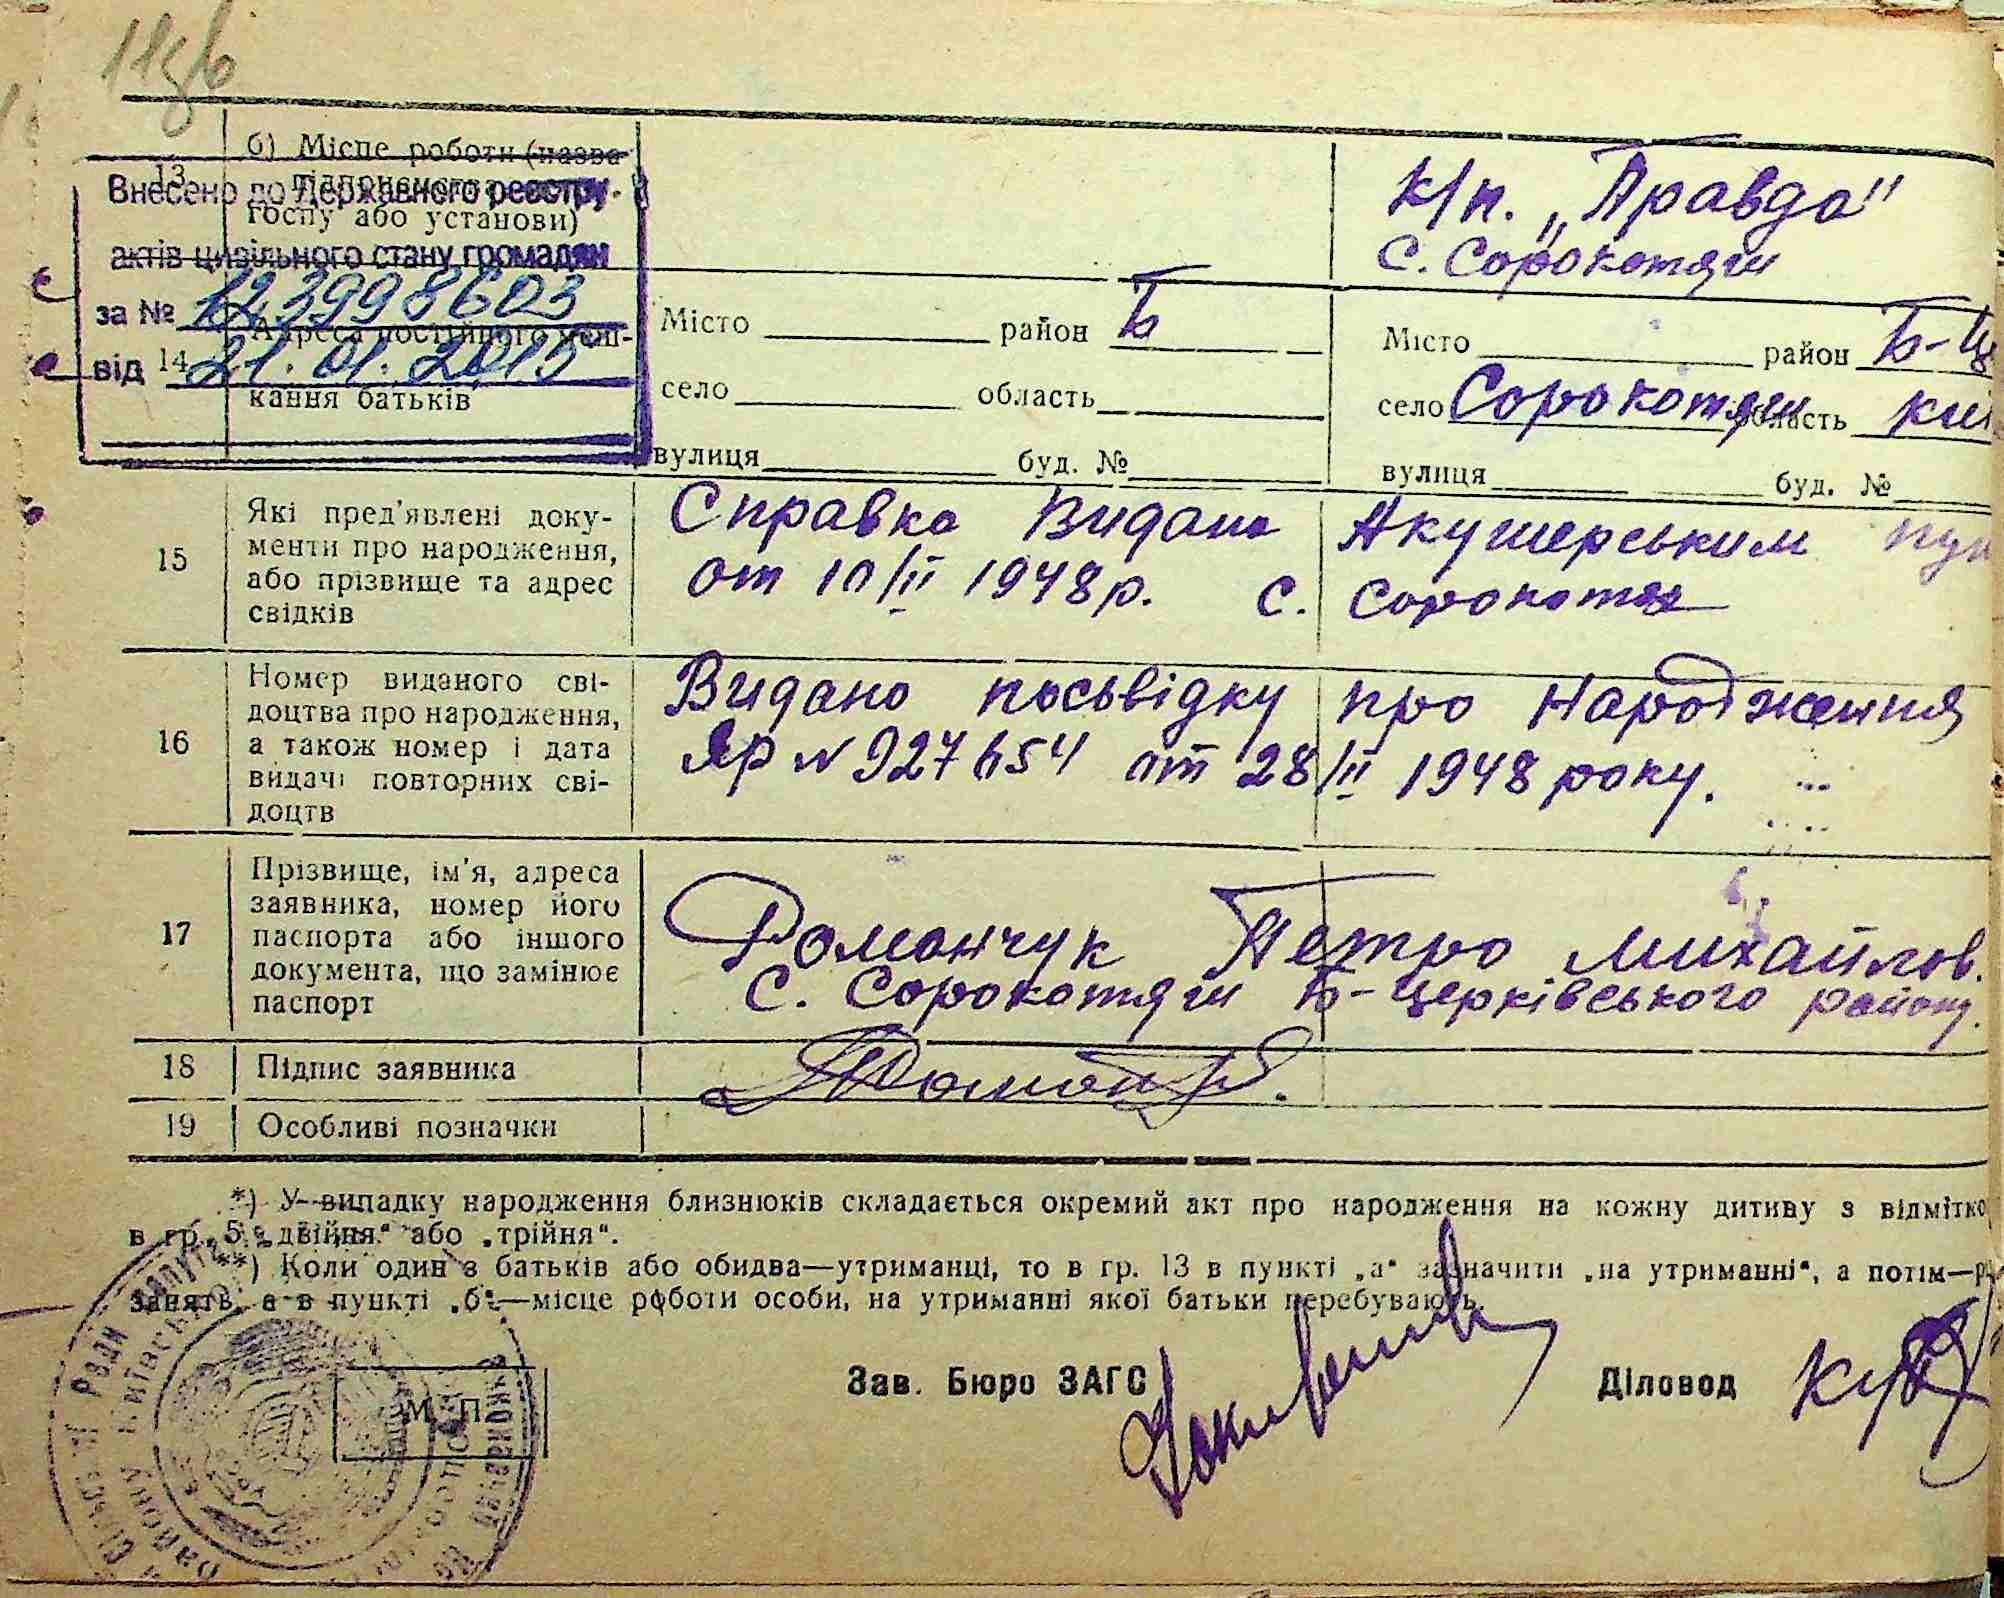 13
б) Місце роботи (назва
підприємства
госпу або установи)
к/п. „Правда"
с. Сорокотяги
Внесено до Державного реєстру
актів цивільного стану громадян
за № 123998603
від 21.01.2015
14
Адреса постійного меш-
кання батьків
Місто район Б
село область
вулиця буд. №
Місто район Б-Це
село Сорокотяги область Киї
вулиця буд. №
15
Які пред'явлені доку-
менти про народження,
або прізвище та адрес
свідків
Справка видана Акушерським пун
от 10/II 1948р. с. Сорокотяг
16
Номер виданого сві-
доцтва про народження,
а також номер і дата
видачі повторних сві-
доцтв
Видано посьвідку про народження
ЯР № 927654 от 28/II 1948 року.
17
Прізвище, ім'я, адреса
заявника, номер його
паспорта або іншого
документа, що замінює
паспорт
Романчук Петро Михайлов.
с. Сорокотяги Б-Церківського району.
18
Підпис заявника
19
Особливі позначки
*) У випадку народження близнюків складається окремий акт про народження на кожну дитину з відмітко
в гр. 5 „двійня" або „трійня".
**) Коли один з батьків або обидва—утриманці, то в гр. 13 в пункті „а" зазначити „на утриманні", а потім—р
занять, а в пункті „б"—місце роботи особи, на утриманні якої батьки перебувають.
Зав. Бюро ЗАГС
Діловод
М. П.